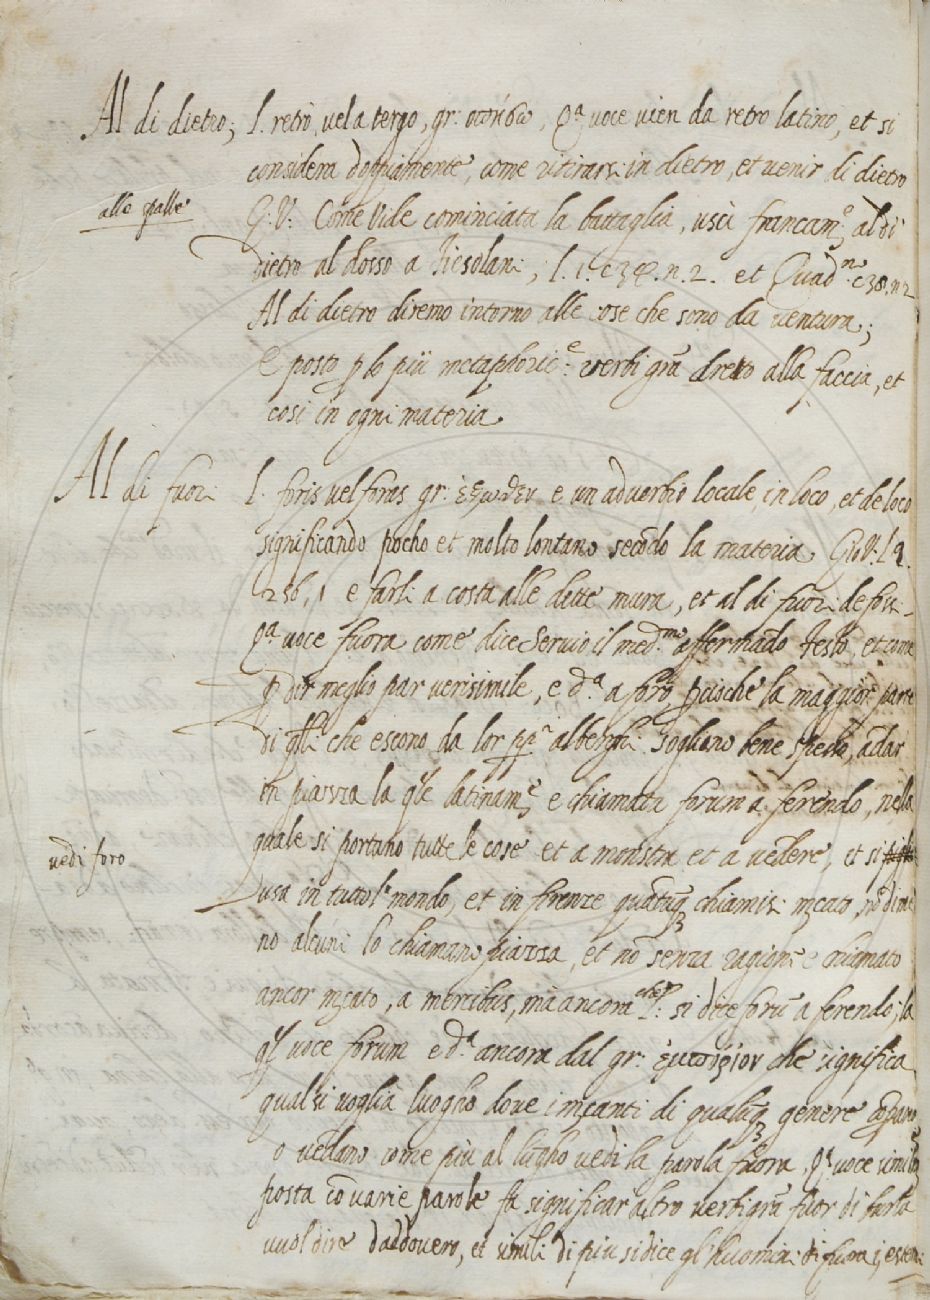 Al di dietro; l. retrò, vel a tergo, gr: ὀπίσω, Qᵃ voce vien da retro latino, et si
considera doppiamente, come ritirarsi in dietro, et venir di dietro
alle spalle
G.V: Come vide cominciata la battaglia, uscì francamᵉ al di
dietro al dosso a Fiesolani, l. 1. c 38. n. 2. et Quadⁿ. c 38. n 2
Al di dietro diremo intorno alle cose che sono da ventura;
E posto p lo più metaphoricᵉ: verbi grã dreto alla faccia, et
cosi in ogni materia
Al di fuori l. foris vel foras gr: ἔξωθεν e un adverbio locale, in loco, et de loco
significando pocho et molto lontano secõdo la materia. Gio V. l 9.
256, 1 e farsi a costa alle dette mura, et al di fuori de fossi
Qᵃ voce fuora come dice Servio il medᵐᵒ affermãdo Festo, et come
p dir meglio par verisimile, e dᵃ a foro, pcioche la maggior parte
di qlli che escono da lor ppⁱ alberghi sogliono bene spesso, ãdar
in piazza la qle latinamᵉ e chiamata forum a ferendo, nella
vedi foro
quale si portano tutte le cose et a monstra et a vedere, et si
usa in tutto 'l mondo, et in firenze quãtũq chiamisi mcato, nõdime
no alcuni lo chiamano piazza, et nõ senza ragione e chiamato
ancor mcato, a mercibus, mà ancora si dice forũ a ferendo; la
ql voce forum e dᵃ ancora dal gr: ἐμπορίον che significa
qual si voglia luogho dove i mcanti di qualũq genere cõpano
o vẽdano come più al lũgho vedi la parola fuora. Qᵃ voce similᵉ
posta cõ varie parole fa significar altro verbigrã fuor di burla
vuol dire daddovero, et simili di piu si dice gl'huomini di fuora i, esterni